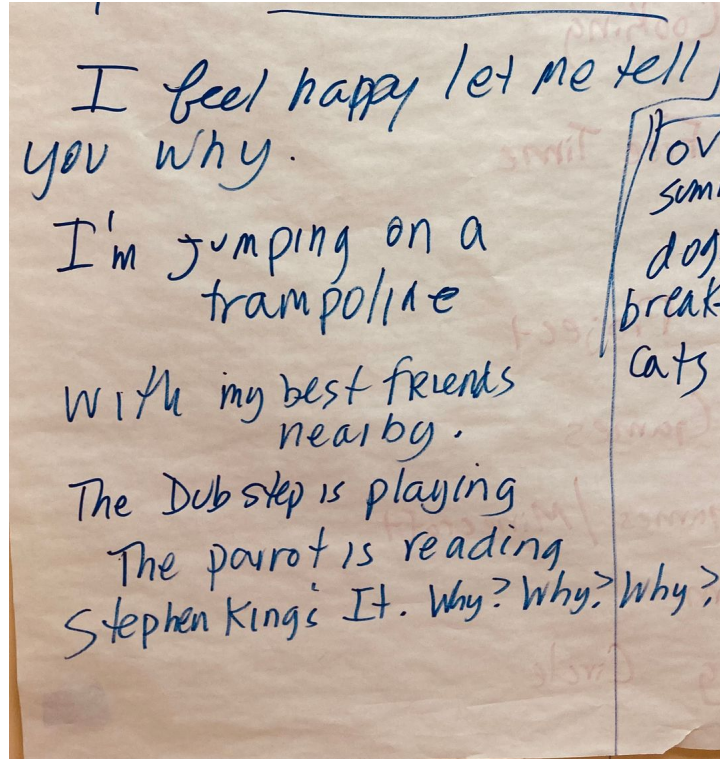 I feel happy let me tell
you why.
I'm jumping on a
trampoline
with my best friends
nearby.
The Dubstep is playing
The parrot is reading
Stephen King's It. Why? Why? Why?
dog
break
cats